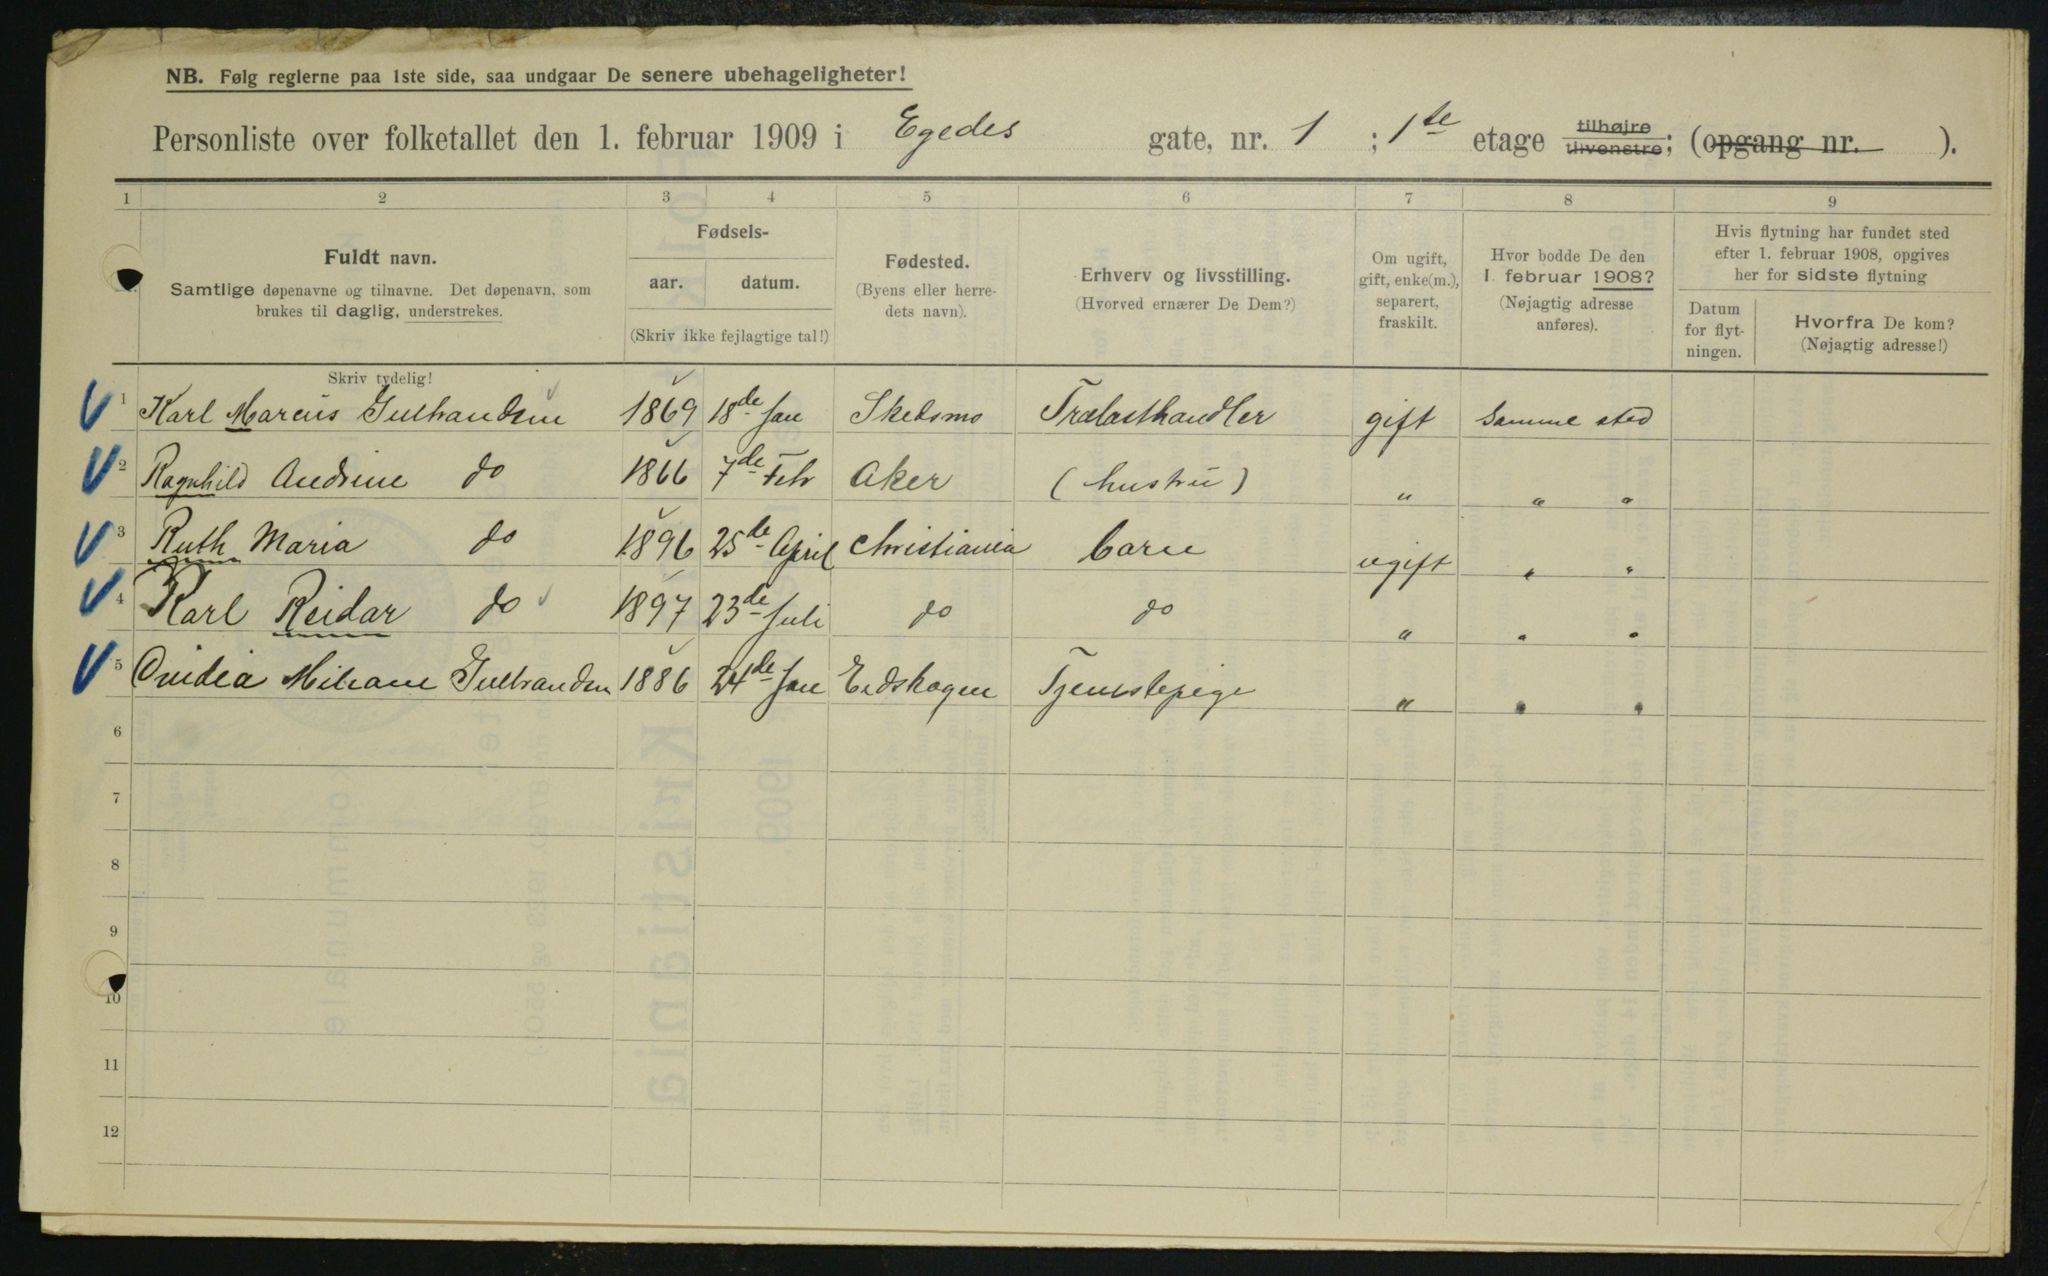 NB. Følg reglerne paa 1ste side, saa undgaar De senere ubehageligheter!
Personliste over folketallet den 1. februar 1909 i Egedes gate, nr. 1 ; 1ste etage tilhøjre tilvenstre; (opgang nr. ).
1 2 3 4 5 6 7 8 9
Fuldt navn.
Samtlige døpenavne og tilnavne. Det døpenavn, som
brukes til daglig, understrekes.
Skriv tydelig!
Fødsels-
aar. datum.
(Skriv ikke fejlagtige tal!)
Fødested.
(Byens eller herre-
dets navn).
Erhverv og livsstilling.
(Hvorved ernærer De Dem?)
Om ugift,
gift, enke(m.),
separert,
fraskilt.
Hvor bodde De den
1. februar 1908?
(Nøjagtig adresse
anføres).
Hvis flytning har fundet sted
efter 1. februar 1908, opgives
her for sidste flytning
Datum
for flyt-
ningen.
Hvorfra De kom?
(Nøjagtig adresse!)
1 Karl Marcus Gulbrandsen 1869 18de Jan Skedsmo Trælasthandler gift Samme sted
2 Ragnhild Andrine do 1866 7de Febr Aker (hustru) " " "
3 Ruth Maria do 1896 25de April Christiania barn ugift " "
4 Karl Reidar do 1897 23de Juli do do " " "
5 Ovidia Gulbrandsen 1886 24de Jan Eidskogen Tjenestepige " " "
6
7
8
9
10
11
12